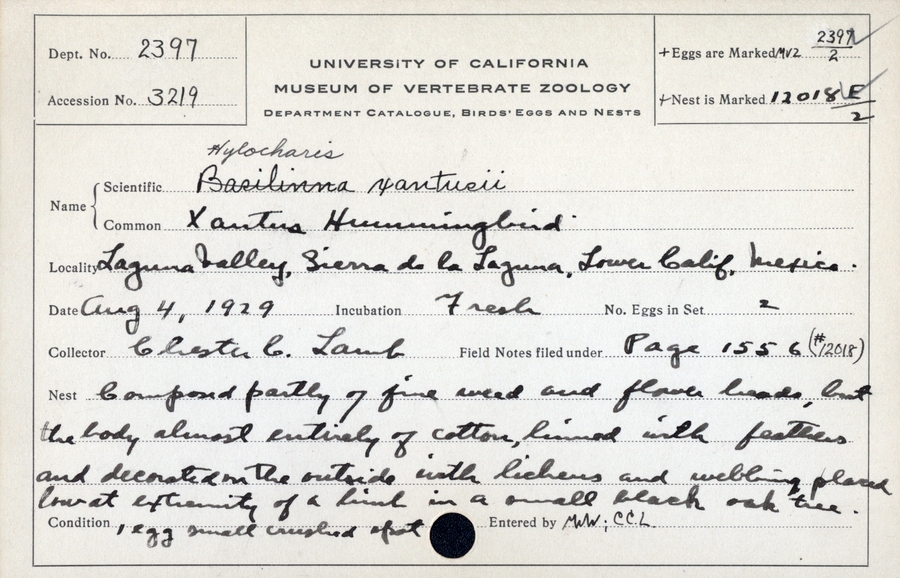 Dept. No. 2397
Accession No. 3219
UNIVERSITY OF CALIFORNIA
MUSEUM OF VERTEBRATE ZOOLOGY
DEPARTMENT CATALOGUE, BIRDS' EGGS AND NESTS
+Eggs are Marked MVZ 2397/2
+Nest is Marked 12018 E/2
Hylocharis
Name { Scientific Basilinna xantusii
Common Xantus Hummingbird
Locality Laguna Valley, Sierra de la Laguna, Lower Calif, Mexico.
Date Aug 4, 1929 Incubation Fresh No. Eggs in Set 2
Collector Chester C. Lamb Field Notes filed under Page 1556 (#12018)
Nest Composed partly of fine weed and flower heads, but
the body almost entirely of cotton, linned with feathers
and decorated on the outside with lichens and webbing, placed
low at extremity of a limb in a small black oak tree.
Condition 1 egg small crushed spot Entered by MW; CCL.